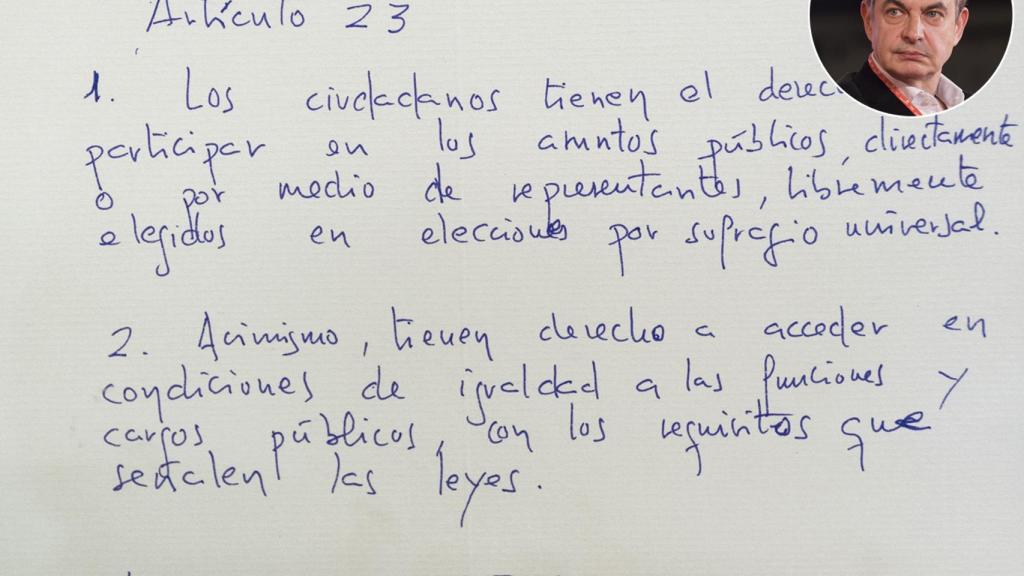 Artículo 23
1. Los ciudadanos tienen el derec
participar en los asuntos públicos, directamente
o por medio de representantes, libremente
elegidos en elecciones por sufragio universal.
2. Asimismo, tienen derecho a acceder en
condiciones de igualdad a las funciones y
cargos públicos, con los requisitos que
señalen las leyes.